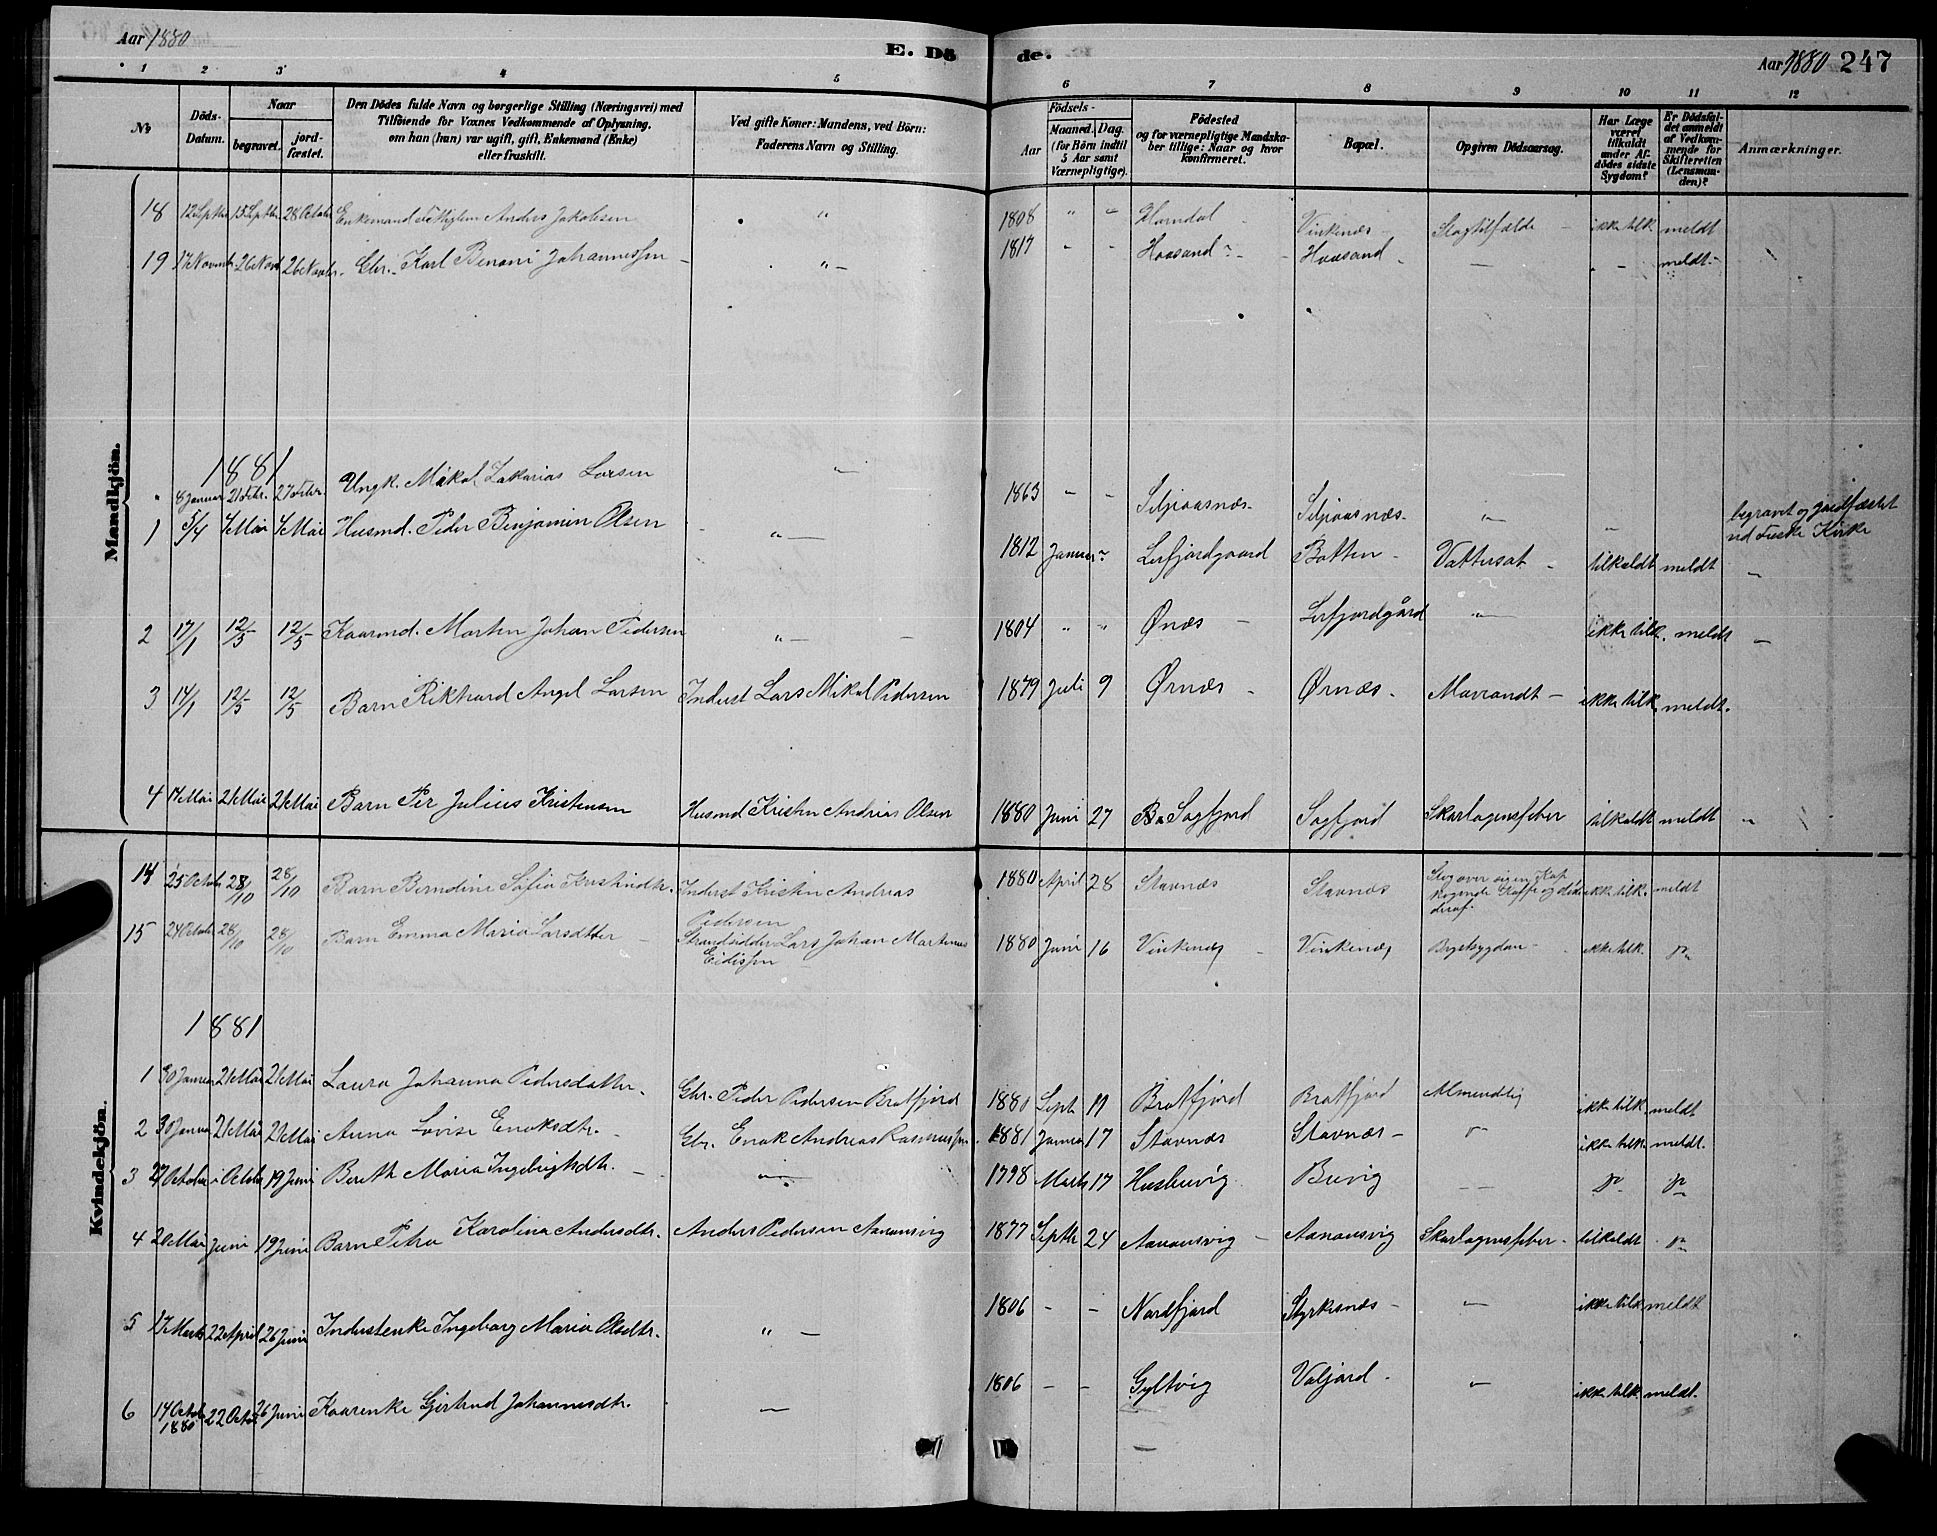 Aar 1880
E. Dö
de.
Aar 1880 247
1 2 3 4 5 6 7 8 9 10 11 12
No
Döds-Datum.
Naar
begravet.
jord-fæstet.
Den Dödes fulde Navn og borgerlige Stilling (Næringsvei) med
Tilföiende for Voxnes Vedkommende af Oplysning,
om han (hun) var ugift, gift, Enkemand (Enke)
eller fraskilt.
Ved gifte Koner: Mandens, ved Börn:
Faderens Navn og Stilling.
Födsels-
Aar
Maaned. Dag.
(for Börn indtil
5 Aar samt
Værnepligtige).
Födested
og for værnepligtige Mandska-
ber tillige: Naar og hvor
konfirmeret.
Bopæl.
Opgiven Dödsaarsag.
Har Læge
været
tilkaldt
under Af-
dödes sidste
Sygdom?
Er Dödsfal-
det anmeldt
af Vedkom-
mende for
Skifteretten
(Lensman-
den)?
Anmærkninger.
Mandkjön.
18 12 Septbr 15 Septbr 28 Octobr Enkemand Anders Jakobsen " 1808 " " Horndal Vinkenæs Slagtilfælde ikke tilk. meldt
19 17 Novembr 26 Novbr 26 Novbr. Gbr. Karl Benoni Johannessen " 1817 " - Haasand Haasand - - meldt.
1881
" 8 Januar 21 Febr. 27 Febr. Ungk. Mikal Zakarias Larsen " 1863 - - Siljoaasnæs. Siljoaasnæs. " " begravet og jordfæstet
ved Fuske Kirke
1 5/4 1 Mai 1 Mai Husmd. Peder Benjamin Olsen " 1812 Januar " Lerfjordgaard Botten Vattersot tilkaldt meldt -
2 17/1 12/5 12/5 Kaarmd. Morten Johan Pedersen " 1804 " " Ørnæs Lerfjordgård " ikke tilk. meldt -
3 14/1 12/5 12/5 Barn Rikhard Angel Larsen Inderst Lars Mikal Pedersen 1879 Juli 9 Ørnæs Ørnæs ikke tilk. meldt.
4 17 Mai 21 Mai 21 Mai Barn Per Julius Kristensen Husmd Kristen Andreas Olsen 1880 Juni 27 Sagfjord Sagfjord Skarlagensfeber tilkaldt meldt "
Kvindekjön.
14 25 Octobr 28/10 28/10 Barn Berndine Sofia Kristindtr. Inderst Kristen Andreas
Pedersen 1880 April 28 Stavnæs Stavnæs Slog over sig en Kop
kogende Kaffe og döde
deraf. ikke tilk. meldt
15 24 Octobr 28/10 28/10 Barn Emma Maria Larsdtter Strandsidder Lars Johan Martinus
Eidissen 1880 Juni 16 Vinkenæs Vinkenæs Brystsygdom ikke tilk. do
1881
1 30 Januar 21 Mai 21 Mai Laura Johanna Pedersdatter Gbr. Peder Pedersen Bratfjord 1880 Septb 11 Bratfjord Bratfjord Almindelig ikke tilk. meldt
2 30 Januar 21 Mai 21 Mai Anna Lovise Enoksdtr. Gbr. Enok Andreas Rasmussen 1881 Januar 17 Stavnæs Stavnæs do ikke tilk. meldt.
3 27 October i October 19 Juni Bereth Maria Ingebrigtsdtr. " 1798 Marts 17 Husbuvig Buvig - do do
4 20 Mai Juni 19 Juni Barn Petra Karolina Andersdtr. Anders Pedersen Aanansvig 1877 Septbr 24 Aanansvig Aanansvig Skarlagensfeber tilkaldt do
5 17 Marts 22 April 26 Juni Inderstenke Ingeborg Maria Olsdtr. " 1806 - - Nordfjord Styrkesnæs - ikke tilk meldt
6 14 Octob
1880 22 Octob 26 Juni Kaarenke Gjertrud Johannesdtr. - 1806 - - Gyltvig Valjord - ikke tilk meldt.